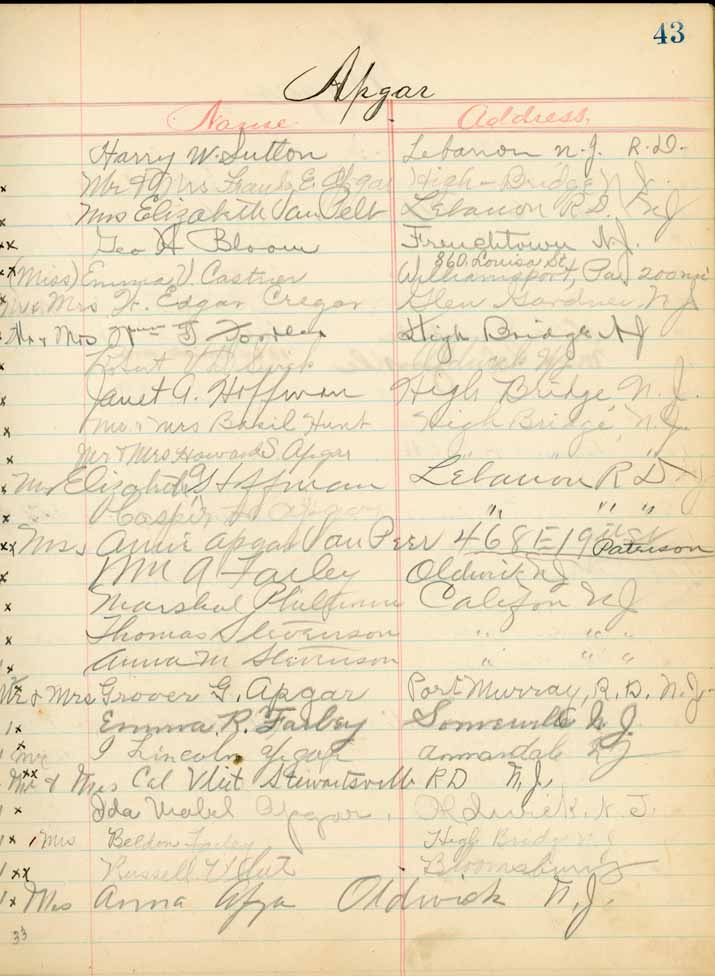 43
Apgar
Name Address
Harry W. Sutton Lebanon N.J. R.D.
x Mr & Mrs Frank E. Apgar High-Bridge N.J.
x Mrs Elizabeth Van Pelt Lebanon R.D. NJ
xx Geo H Bloom Frenchtown N.J.
860 Louisa St.
x (Miss) Emma V. Castner Williamsport, Pa. 200 mi
Mrs. Edgar Cregar Glen Gardner N J
Mr & Mrs High Bridge NJ
x
x Janet A. Hoffman High Bridge N. J.
x Mr & Mrs Basil Hunt High Bridge, N.J.
x Mr & Mrs Howard S. Apgar " " "
x Mrs Elizabeth Hoffman Lebanon R D NJ
x Casper Apgar " " "
xx Mrs. Annie Apgar Van Peer 468 E 19 St Paterson
x Wm A Farley Oldwick NJ
x Marshal Califon NJ
x Thomas Stevenson " " "
x Anna M Stevenson " " "
Mr & Mrs Grover G. Apgar Port Murray, R.D. N.J.
1x Emma R. Farley Somerville N.J.
x Mr Lincoln Apgar Annandale NJ
xx Mr & Mrs Cal Vliet Stewartsville RD N.J.
1x Ida Mabel Apgar. Oldwick. N.J.
1x Mrs Beldon Farley High Bridge N.J.
1xx Russell Vliet Bloomsbury
1x Mrs Anna Oldwick N.J.
33